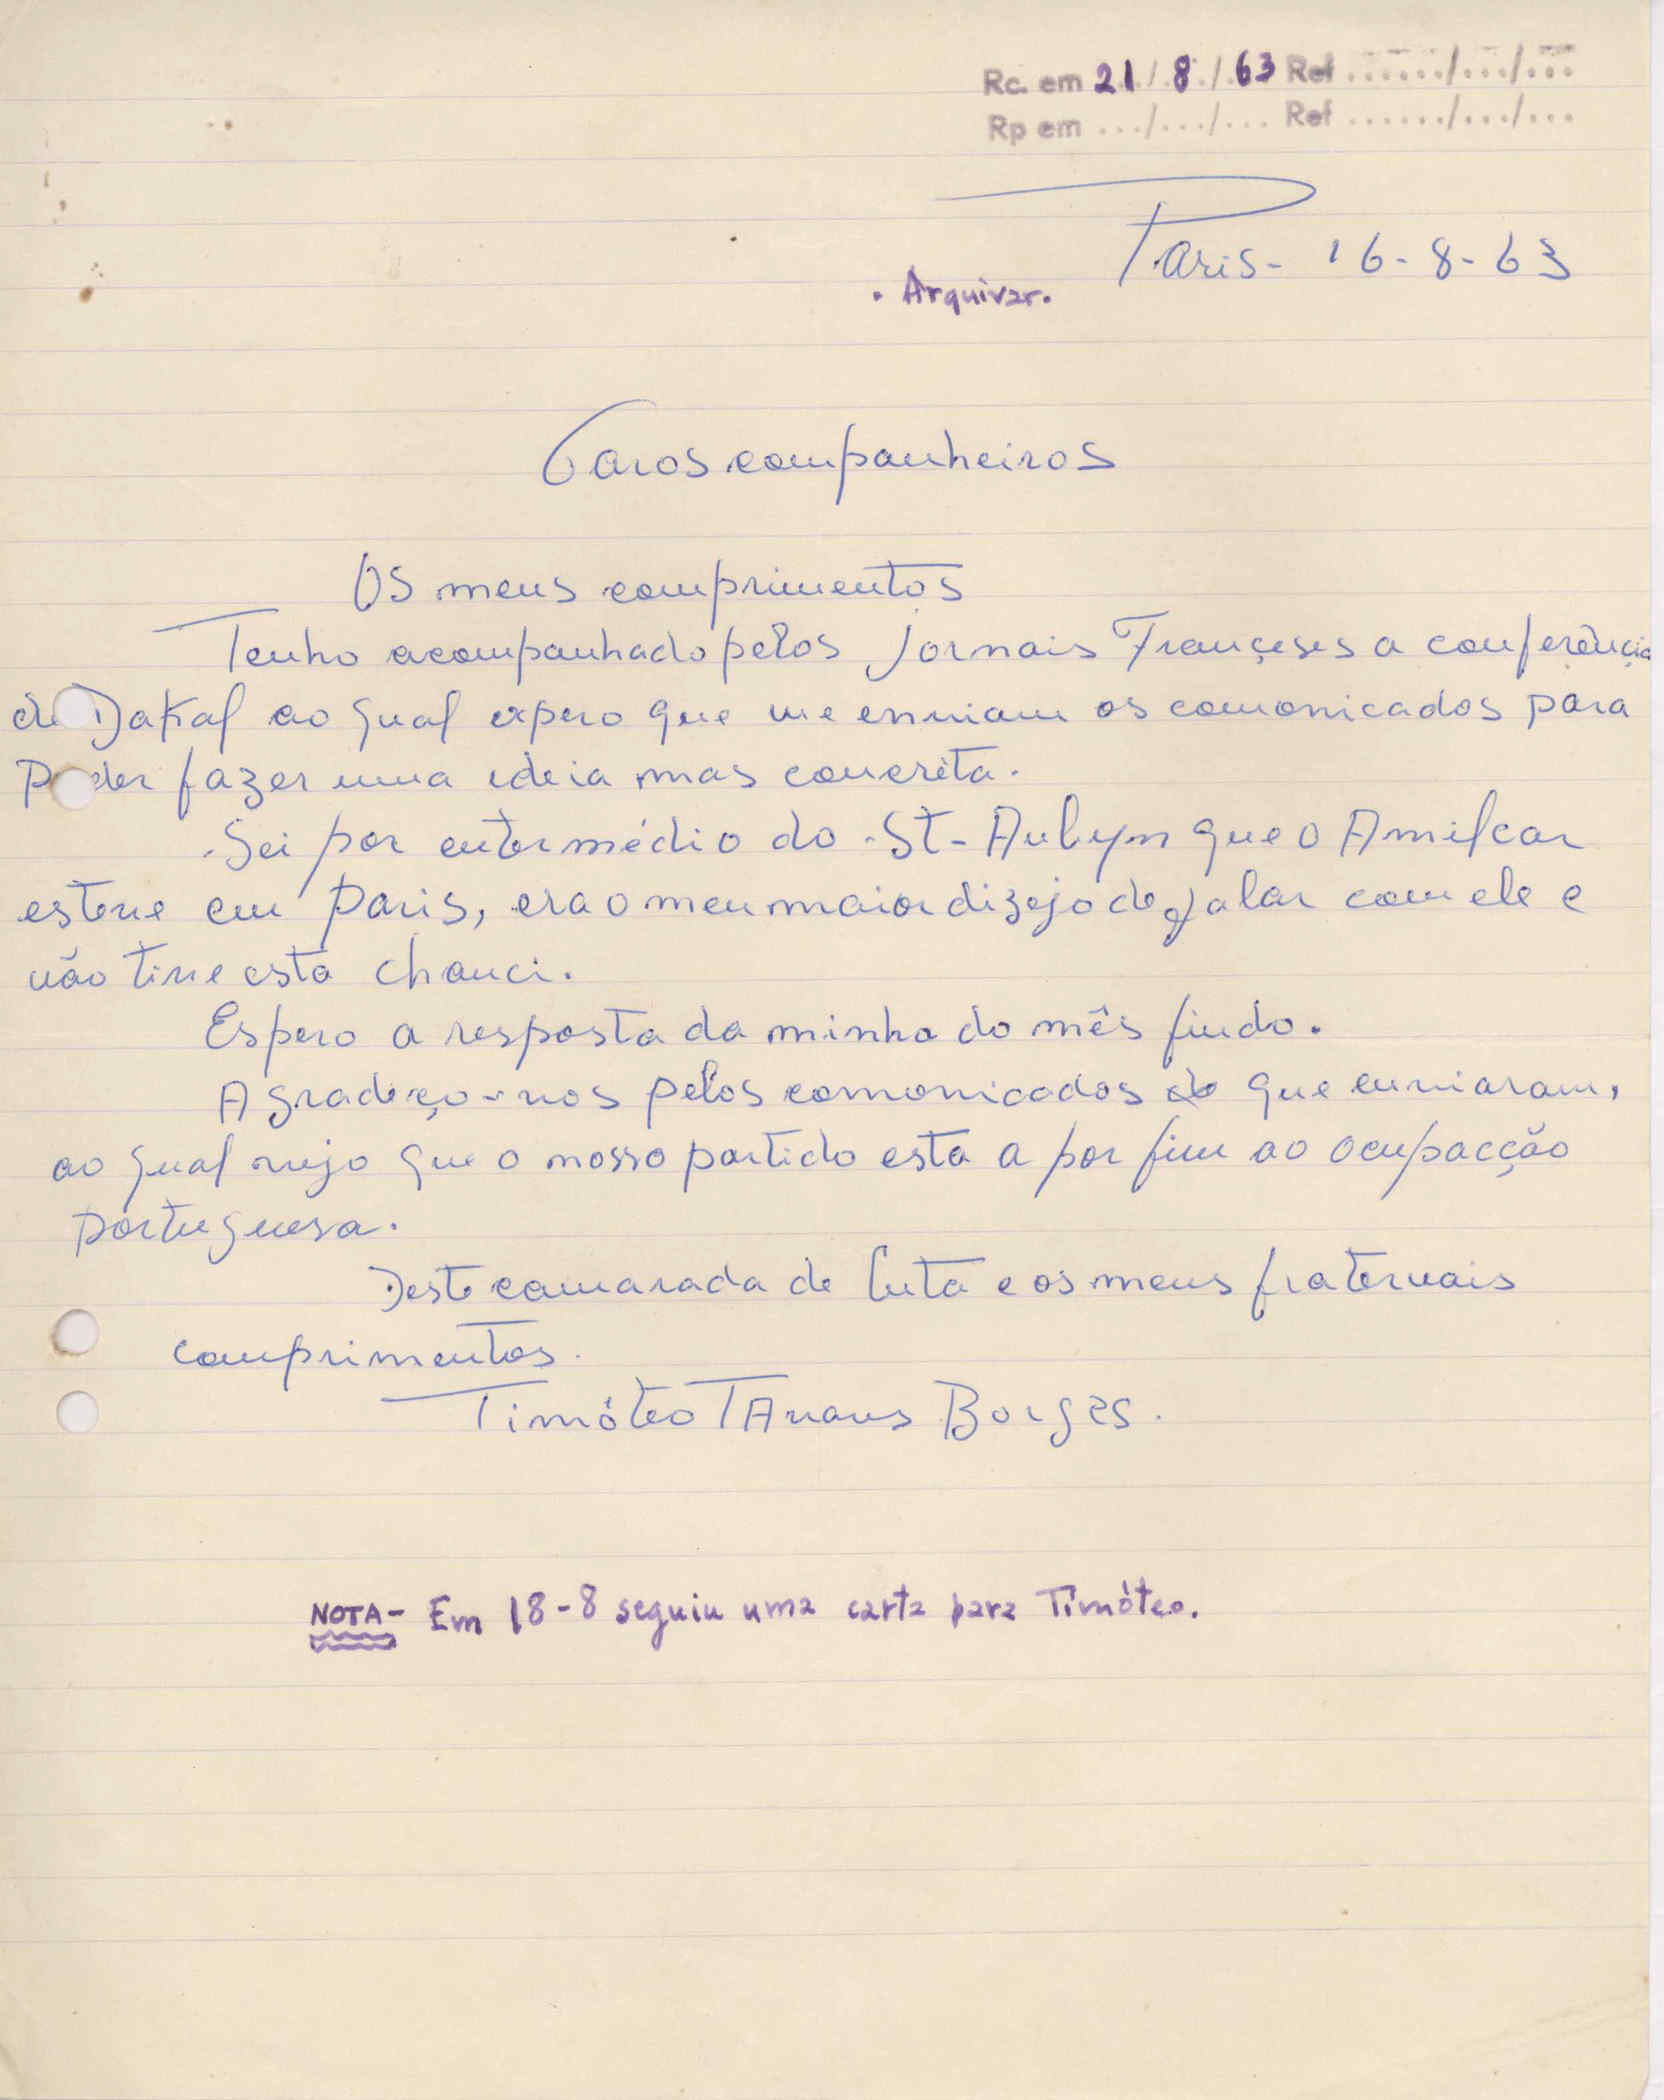 Rc. em 21/8/63 Ref ....../.../...
Rp em .../.../... Ref ....../.../...
Paris- 16-8-63
. Arquivar.
Caros companheiros
Os meus comprimentos
Tenho acompanhado pelos Jornais Françeses a conferência
de Dakal ao qual expero que me enviam os comonicados para
Poder fazer uma ideia mas concréta.
Sei por entermédio do St-Aubyn que o Amilcar
esteve em Paris, era o meu maior dizejo de falar com ele e
não tive esta chanci.
Espero a resposta da minha do mês findo.
Agradeço-vos pelos comonicados que enviaram,
ao qual vejo que o nosso partido esta a por fim ao ocupacção
portuguesa.
Deste camarada de luta e os meus fraternais
comprimentos.
Timóteo TAvares Borges.
NOTA- Em 18-8 seguiu uma carta para Timóteo.